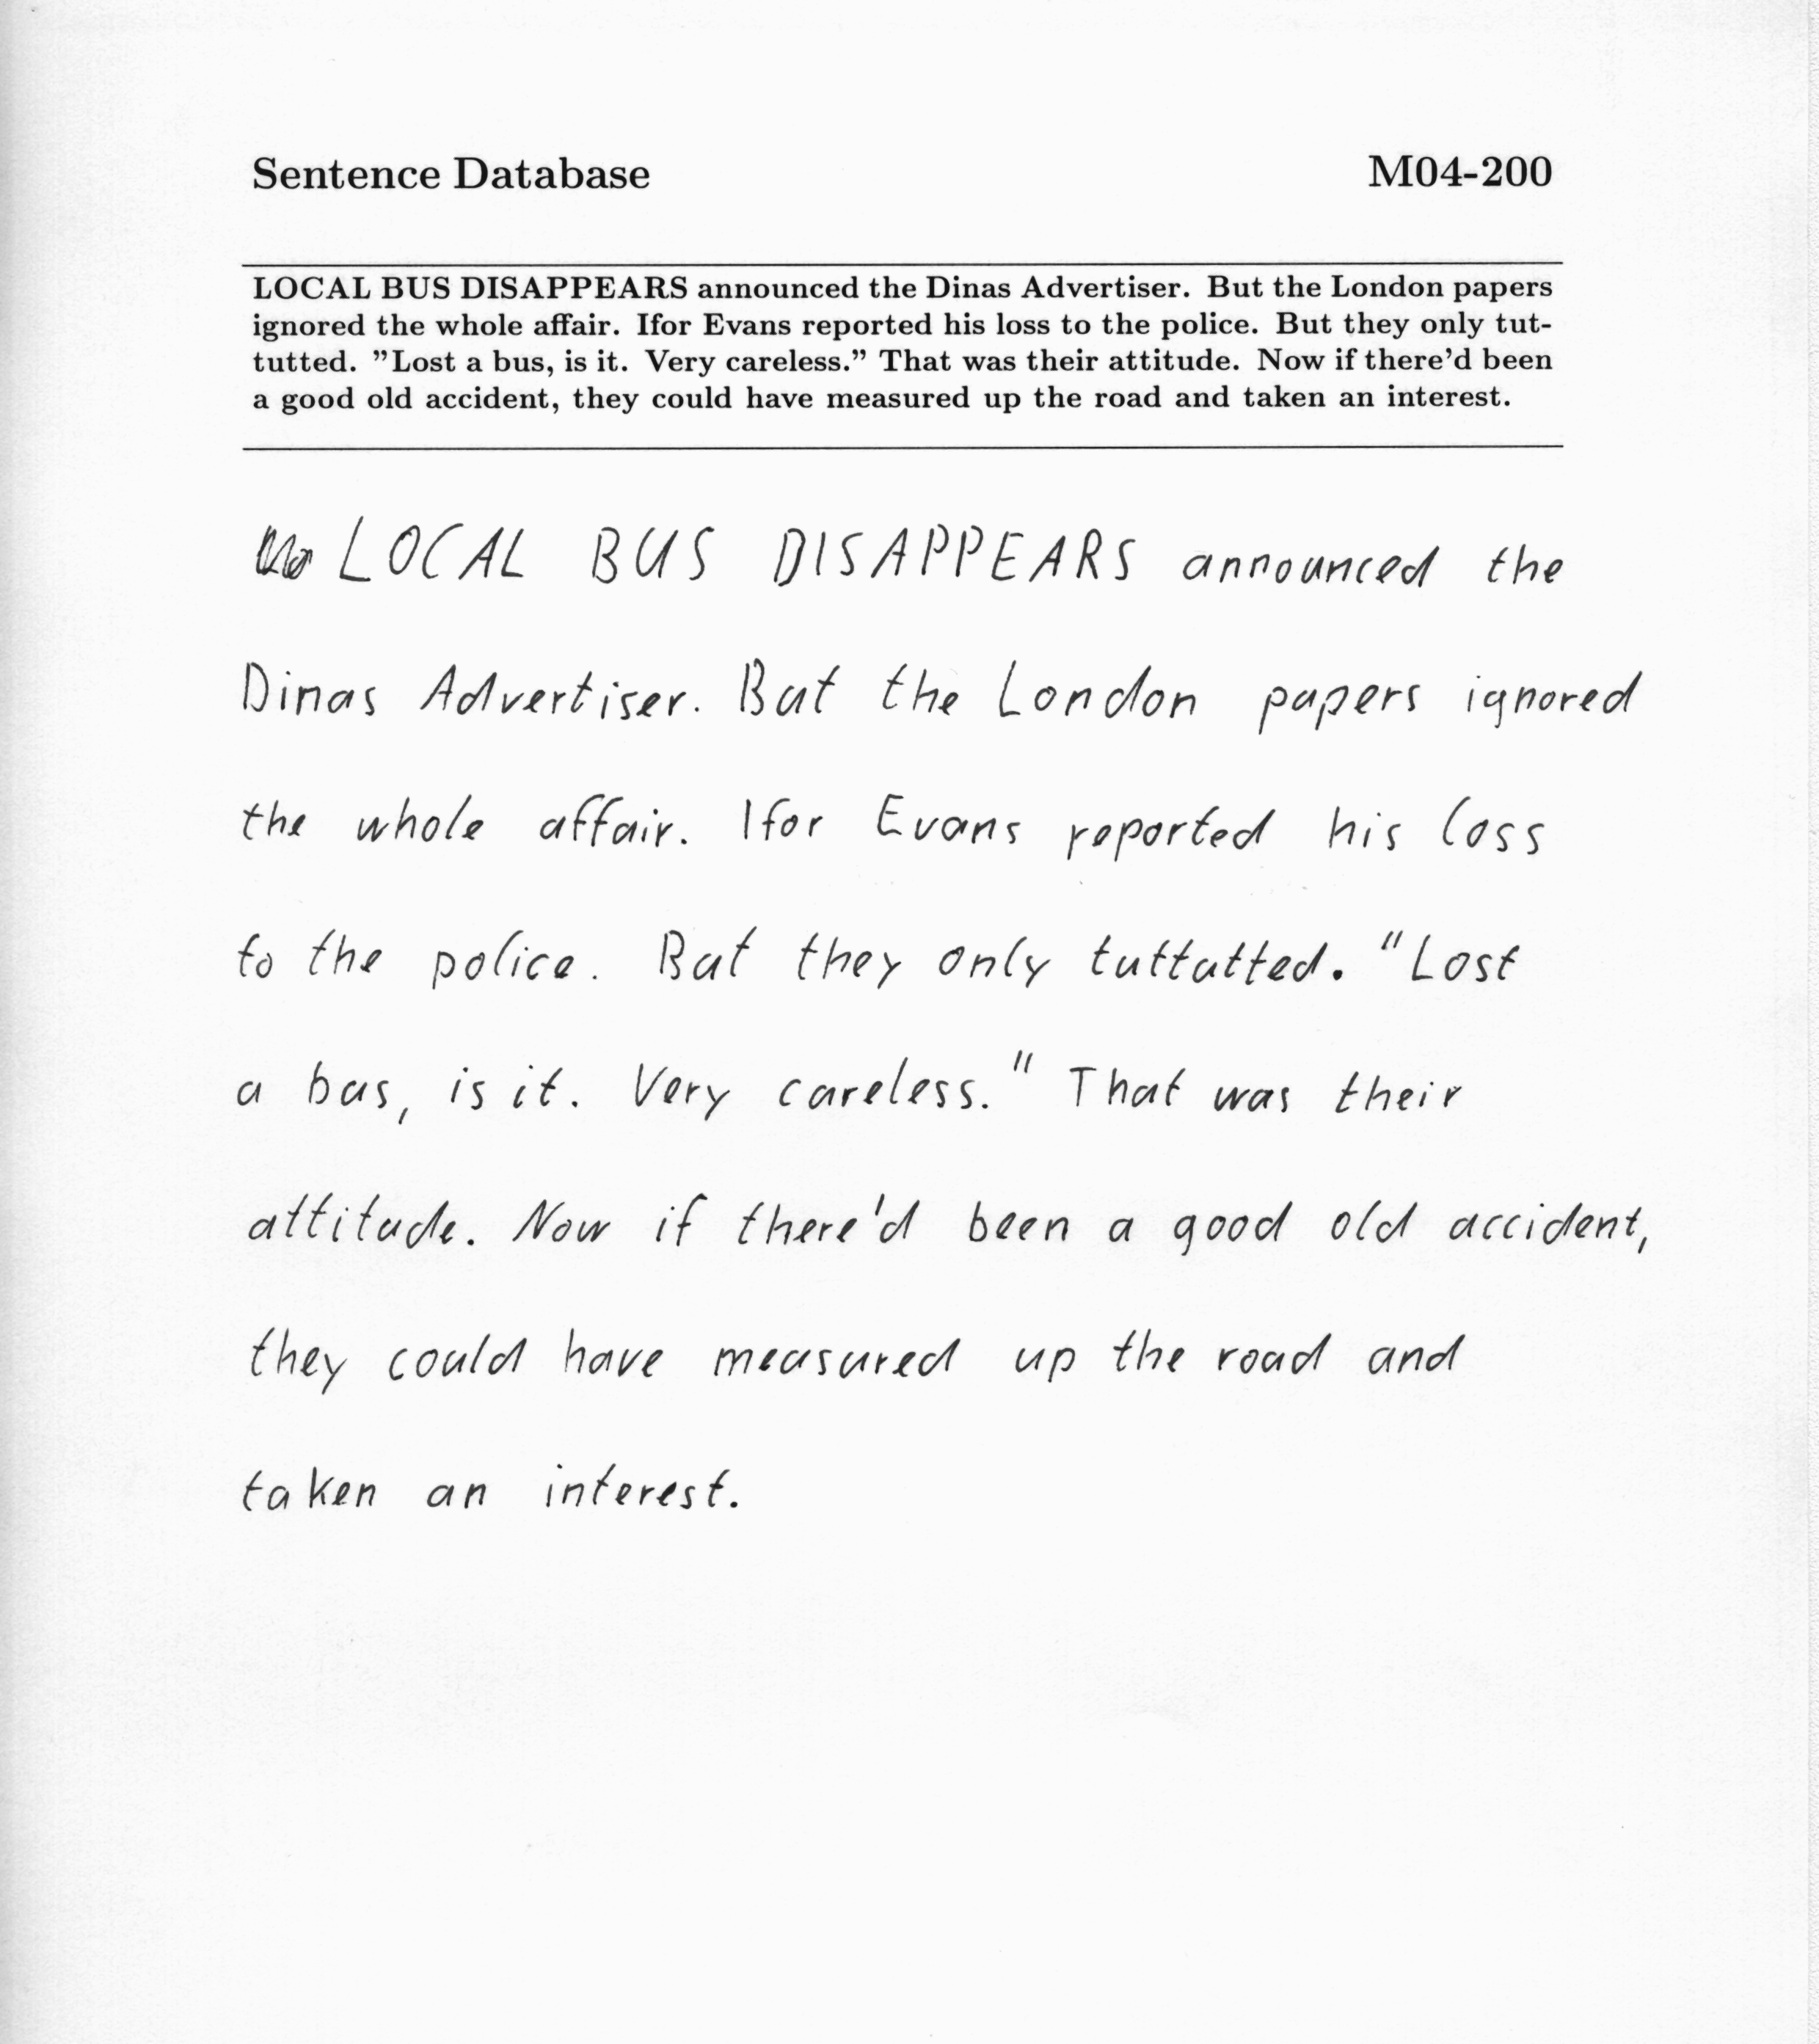 Sentence Database M04-200
LOCAL BUS DISAPPEARS announced the Dinas Advertiser. But the London papers
ignored the whole affair. Ifor Evans reported his loss to the police. But they only tut-
tutted. ”Lost a bus, is it. Very careless.” That was their attitude. Now if there’d been
a good old accident, they could have measured up the road and taken an interest.
LOCAL BUS DISAPPEARS announced the
Dinas Advertiser. But the London papers ignored
the whole affair. Ifor Evans reported his loss
to the police. But they only tuttutted. "Lost
a bus, is it. Very careless." That was their
attitude. Now if there'd been a good old accident,
they could have measured up the road and
taken an interest.